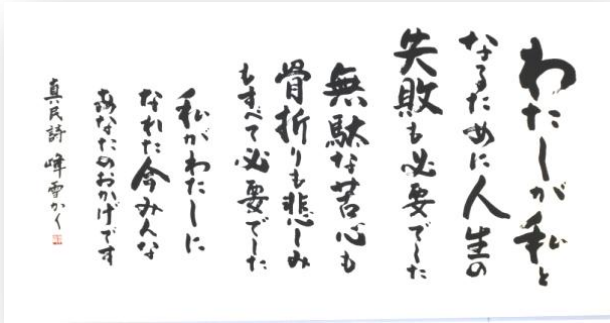 わたしが私と
なるために人生の
失敗も必要でした
無駄な苦心も
骨折りも悲しみ
もすべて必要でした
私がわたしに
なれた今みんな
あなたのおかげです
真民詩 峰雪かく